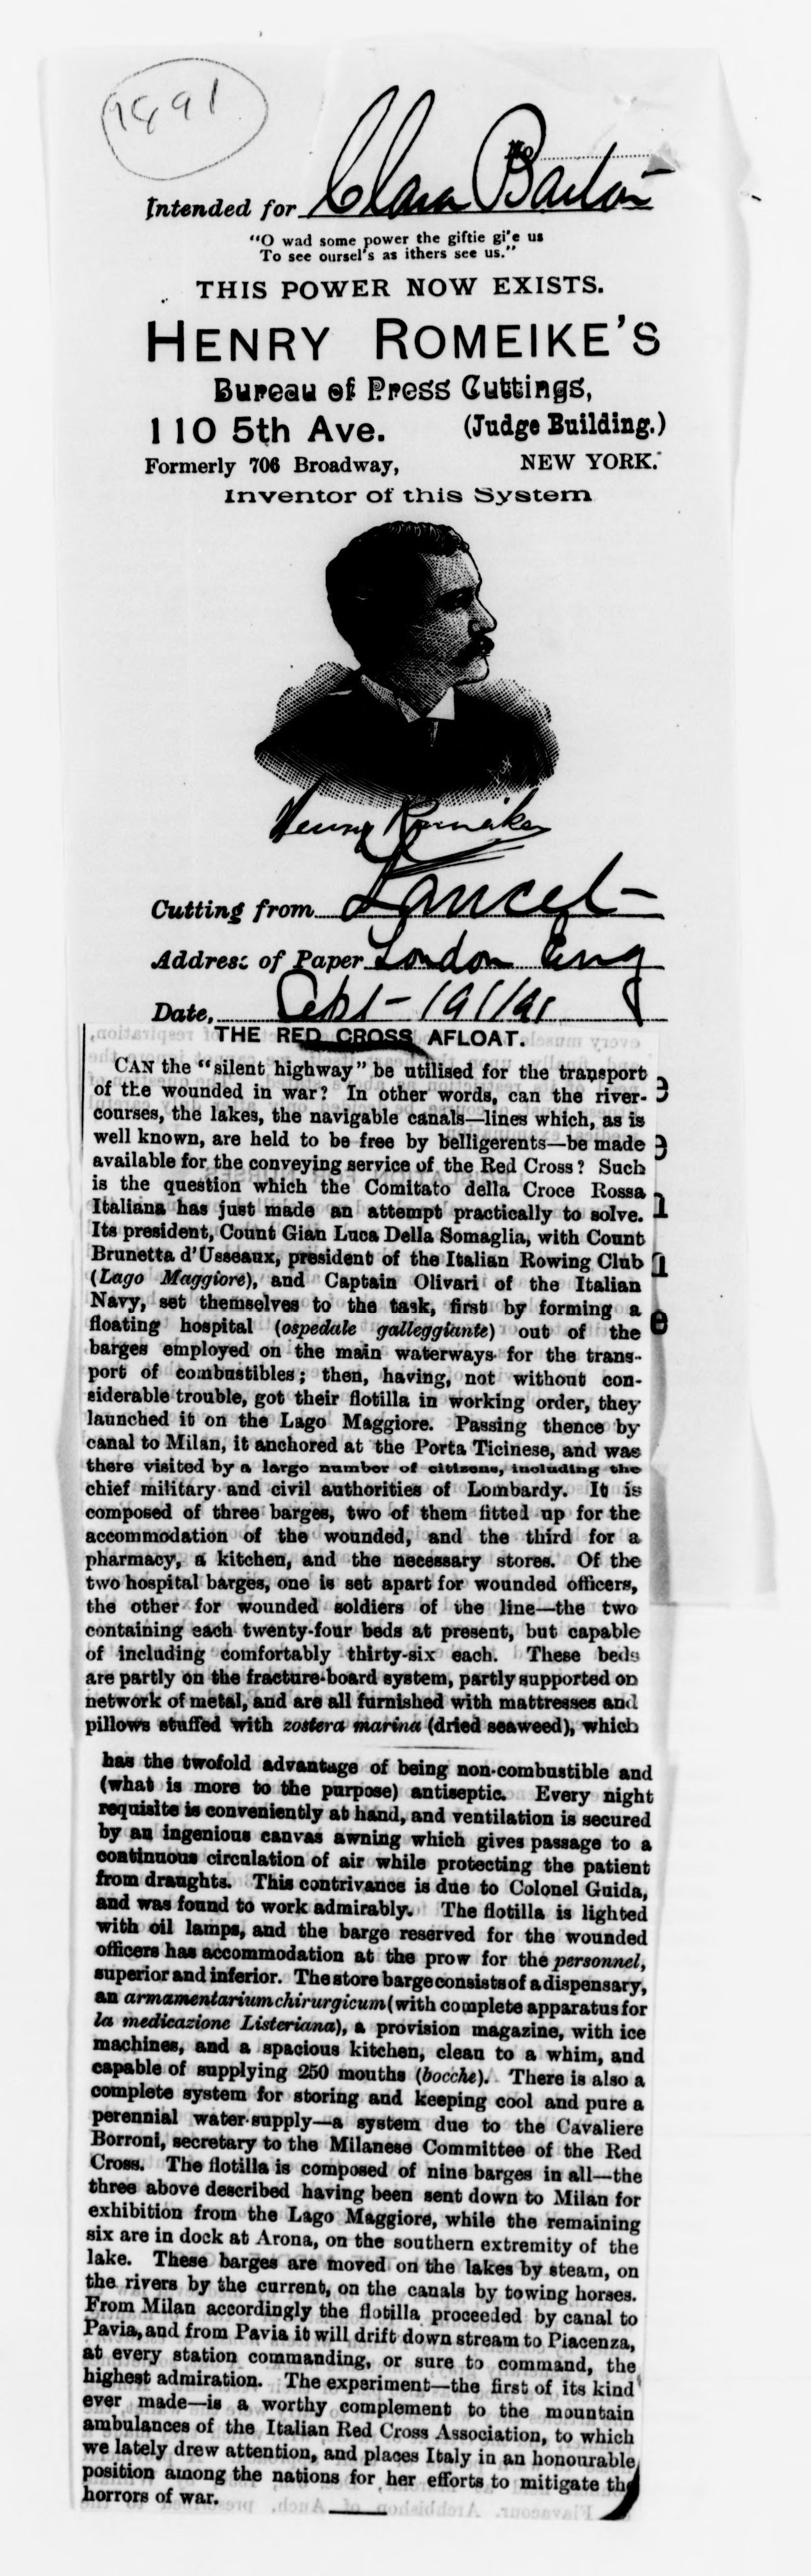 1891
Intended for Clara Barton
"O wad some power the giftie gi'e us
To see oursel's as ithers see us."
THIS POWER NOW EXISTS.
HENRY ROMEIKE'S
Bureau of Press Cuttings,
110 5th Ave. (Judge Building.)
Formerly 706 Broadway, NEW YORK.
Inventor of this System
Henry Romeike
Cutting from Lancet
Address of Paper London Eng
Date, Sept-19/1891
THE RED CROSS AFLOAT.
CAN the "silent highway" be utilised for the transport
of the wounded in war? In other words, can the river-
courses, the lakes, the navigable canals—lines which, as is
well known, are held to be free by belligerents—be made
available for the conveying service of the Red Cross? Such
is the question which the Comitato della Croce Rossa
Italiana has just made an attempt practically to solve.
Its president, Count Gian Luca Della Somaglia, with Count
Brunetta d'Usseaux, president of the Italian Rowing Club
(Lago Maggiore), and Captain Olivari of the Italian
Navy, set themselves to the task, first by forming a
floating hospital (ospedale galleggiante) out of the
barges employed on the main waterways for the trans-
port of combustibles; then, having, not without con-
siderable trouble, got their flotilla in working order, they
launched it on the Lago Maggiore. Passing thence by
canal to Milan, it anchored at the Porta Ticinese, and was
there visited by a large number of citizens, including the
chief military and civil authorities of Lombardy. It is
composed of three barges, two of them fitted up for the
accommodation of the wounded, and the third for a
pharmacy, a kitchen, and the necessary stores. Of the
two hospital barges, one is set apart for wounded officers,
the other for wounded soldiers of the line—the two
containing each twenty-four beds at present, but capable
of including comfortably thirty-six each. These beds
are partly on the fracture-board system, partly supported on
network of metal, and are all furnished with mattresses and
pillows stuffed with zostera marina (dried seaweed), which
has the twofold advantage of being non-combustible and
(what is more to the purpose) antiseptic. Every night
requisite is conveniently at hand, and ventilation is secured
by an ingenious canvas awning which gives passage to a
continuous circulation of air while protecting the patient
from draughts. This contrivance is due to Colonel Guida,
and was found to work admirably. The flotilla is lighted
with oil lamps, and the barge reserved for the wounded
officers has accommodation at the prow for the personnel,
superior and inferior. The store barge consists of a dispensary,
an armamentarium chirurgicum (with complete apparatus for
la medicazione Listeriana), a provision magazine, with ice
machines, and a spacious kitchen, clean to a whim, and
capable of supplying 250 mouths (bocche). There is also a
complete system for storing and keeping cool and pure a
perennial water-supply—a system due to the Cavaliere
Borroni, secretary to the Milanese Committee of the Red
Cross. The flotilla is composed of nine barges in all—the
three above described having been sent down to Milan for
exhibition from the Lago Maggiore, while the remaining
six are in dock at Arona, on the southern extremity of the
lake. These barges are moved on the lakes by steam, on
the rivers by the current, on the canals by towing horses.
From Milan accordingly the flotilla proceeded by canal to
Pavia, and from Pavia it will drift down stream to Piacenza,
at every station commanding, or sure to command, the
highest admiration. The experiment—the first of its kind
ever made—is a worthy complement to the mountain
ambulances of the Italian Red Cross Association, to which
we lately drew attention, and places Italy in an honourable
position among the nations for her efforts to mitigate the
horrors of war.